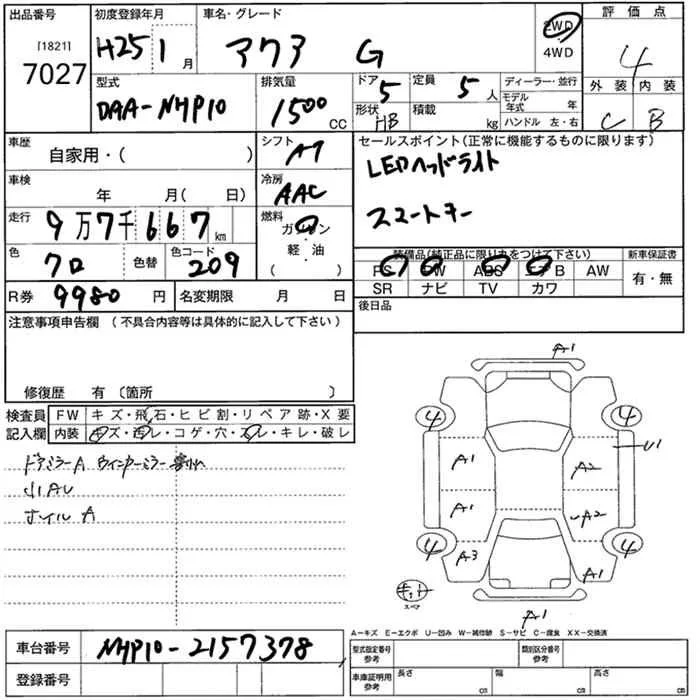 出品番号 初度登録年月 車名・グレード 評価点
[1821] 7027 H25 1月 アクア G 2WD 4WD 4
型式 排気量 ドア 5 定員 5人 ディーラー・並行 外装 内装
DAA-NHP10 1500 CC 形状 HB 積載 kg モデル年式 年 ハンドル 左・右 C B
車歴 自家用・( ) シフト AT セールスポイント(正常に機能するものに限ります)
LEDヘッドライト
車検 年 月( 日) 冷房 AAC
スマートキー
走行 9万7千667km 燃料 ガソリン・軽・油 ( )
色 クロ 色替 色コード 209
装備品(純正品に限り丸をつけて下さい) 新車保証書
PS PW ABS エアB AW 有・無
SR ナビ TV カワ
R券 9980円 名変期限 月 日 後日品
注意事項申告欄 (不具合内容等は具体的に記入して下さい)
修復歴 有〔箇所 〕
検査員記入欄 FW キズ・飛石・ヒビ割・リペア跡・X要
内装 キズ・汚レ・コゲ・穴・スレ・キレ・破レ
ドアミラーA ウインカーミラー
小AU
ホイルA
A1
4 4
A1 A2 U1
A1 A2
4 A3 A1 4
スペア
A1
A-キズ E-エクボ U-凹み W-補修跡 S-サビ C-腐食 XX-交換済
車台番号 NHP10-2157378 型式指定番号 参考 類別区分番号 参考
登録番号 車庫証明用 参考 長さ cm 幅 cm 高さ cm